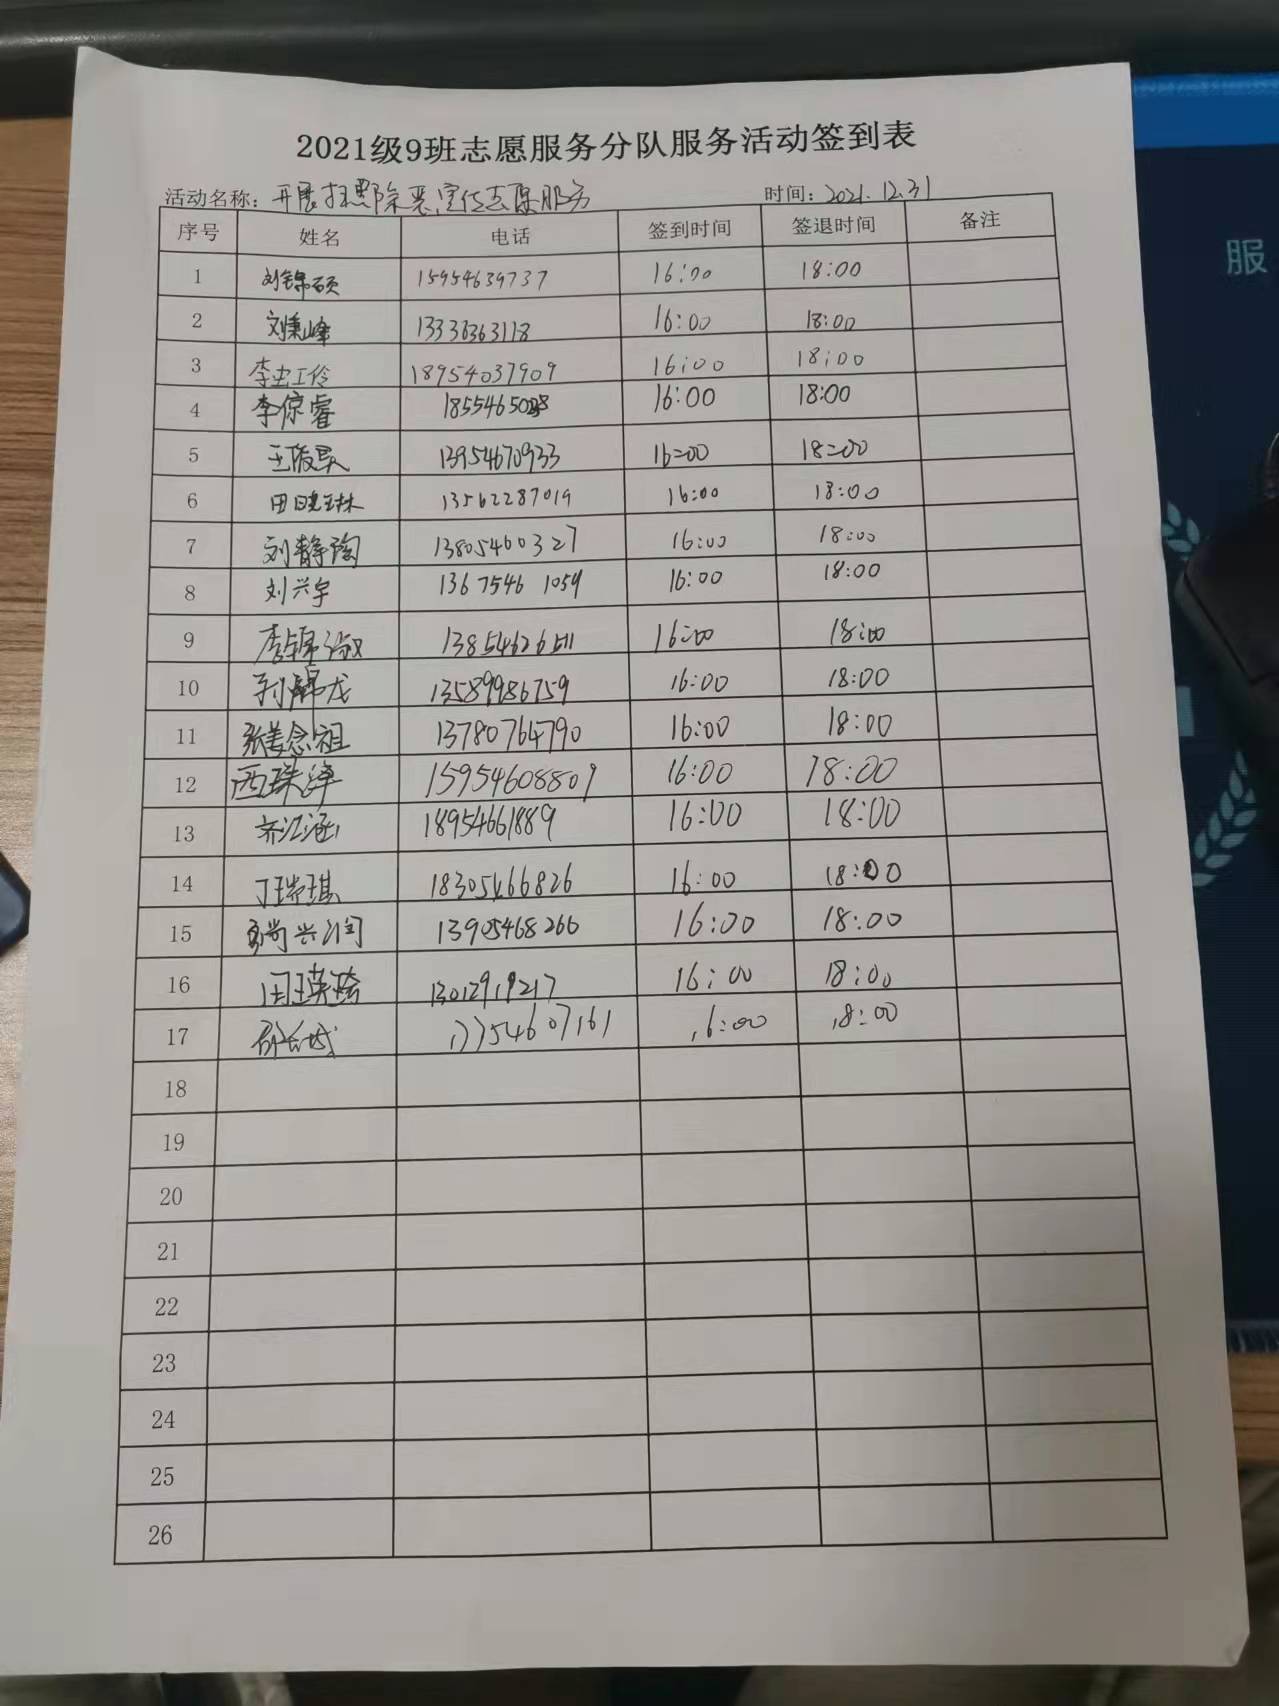 2021级9班志愿服务分队服务活动签到表
活动名称：开展扫黑除恶宣传志愿服务 时间：2021.12.31
序号 姓名 电话 签到时间 签退时间 备注
1 刘锦硕 15954639737 16:00 18:00
2 刘秉峰 13336363118 16:00 18:00
3 18954037909 16:00 18:00
4 李倞睿 16:00 18:00
5 13954670933 16=00 18=00
6 田晓琳 13562287019 16:00 18:00
7 刘静陶 13805460327 16:00 18:00
8 刘兴宇 13675461059 16:00 18:00
9 李锦淑 13854626511 16:00 18:00
10 13589986759 16:00 18:00
11 张姜念祖 13780764790 16:00 18:00
12 西珠泽 15954608809 16:00 18:00
13 齐江涵 18954661889 16:00 18:00
14 丁瑞琪 18305466826 16:00 18:00
15 尚兴润 13905468266 16:00 18:00
16 13012919217 16:00 18:00
17 16:00 18:00
18
19
20
21
22
23
24
25
26
服